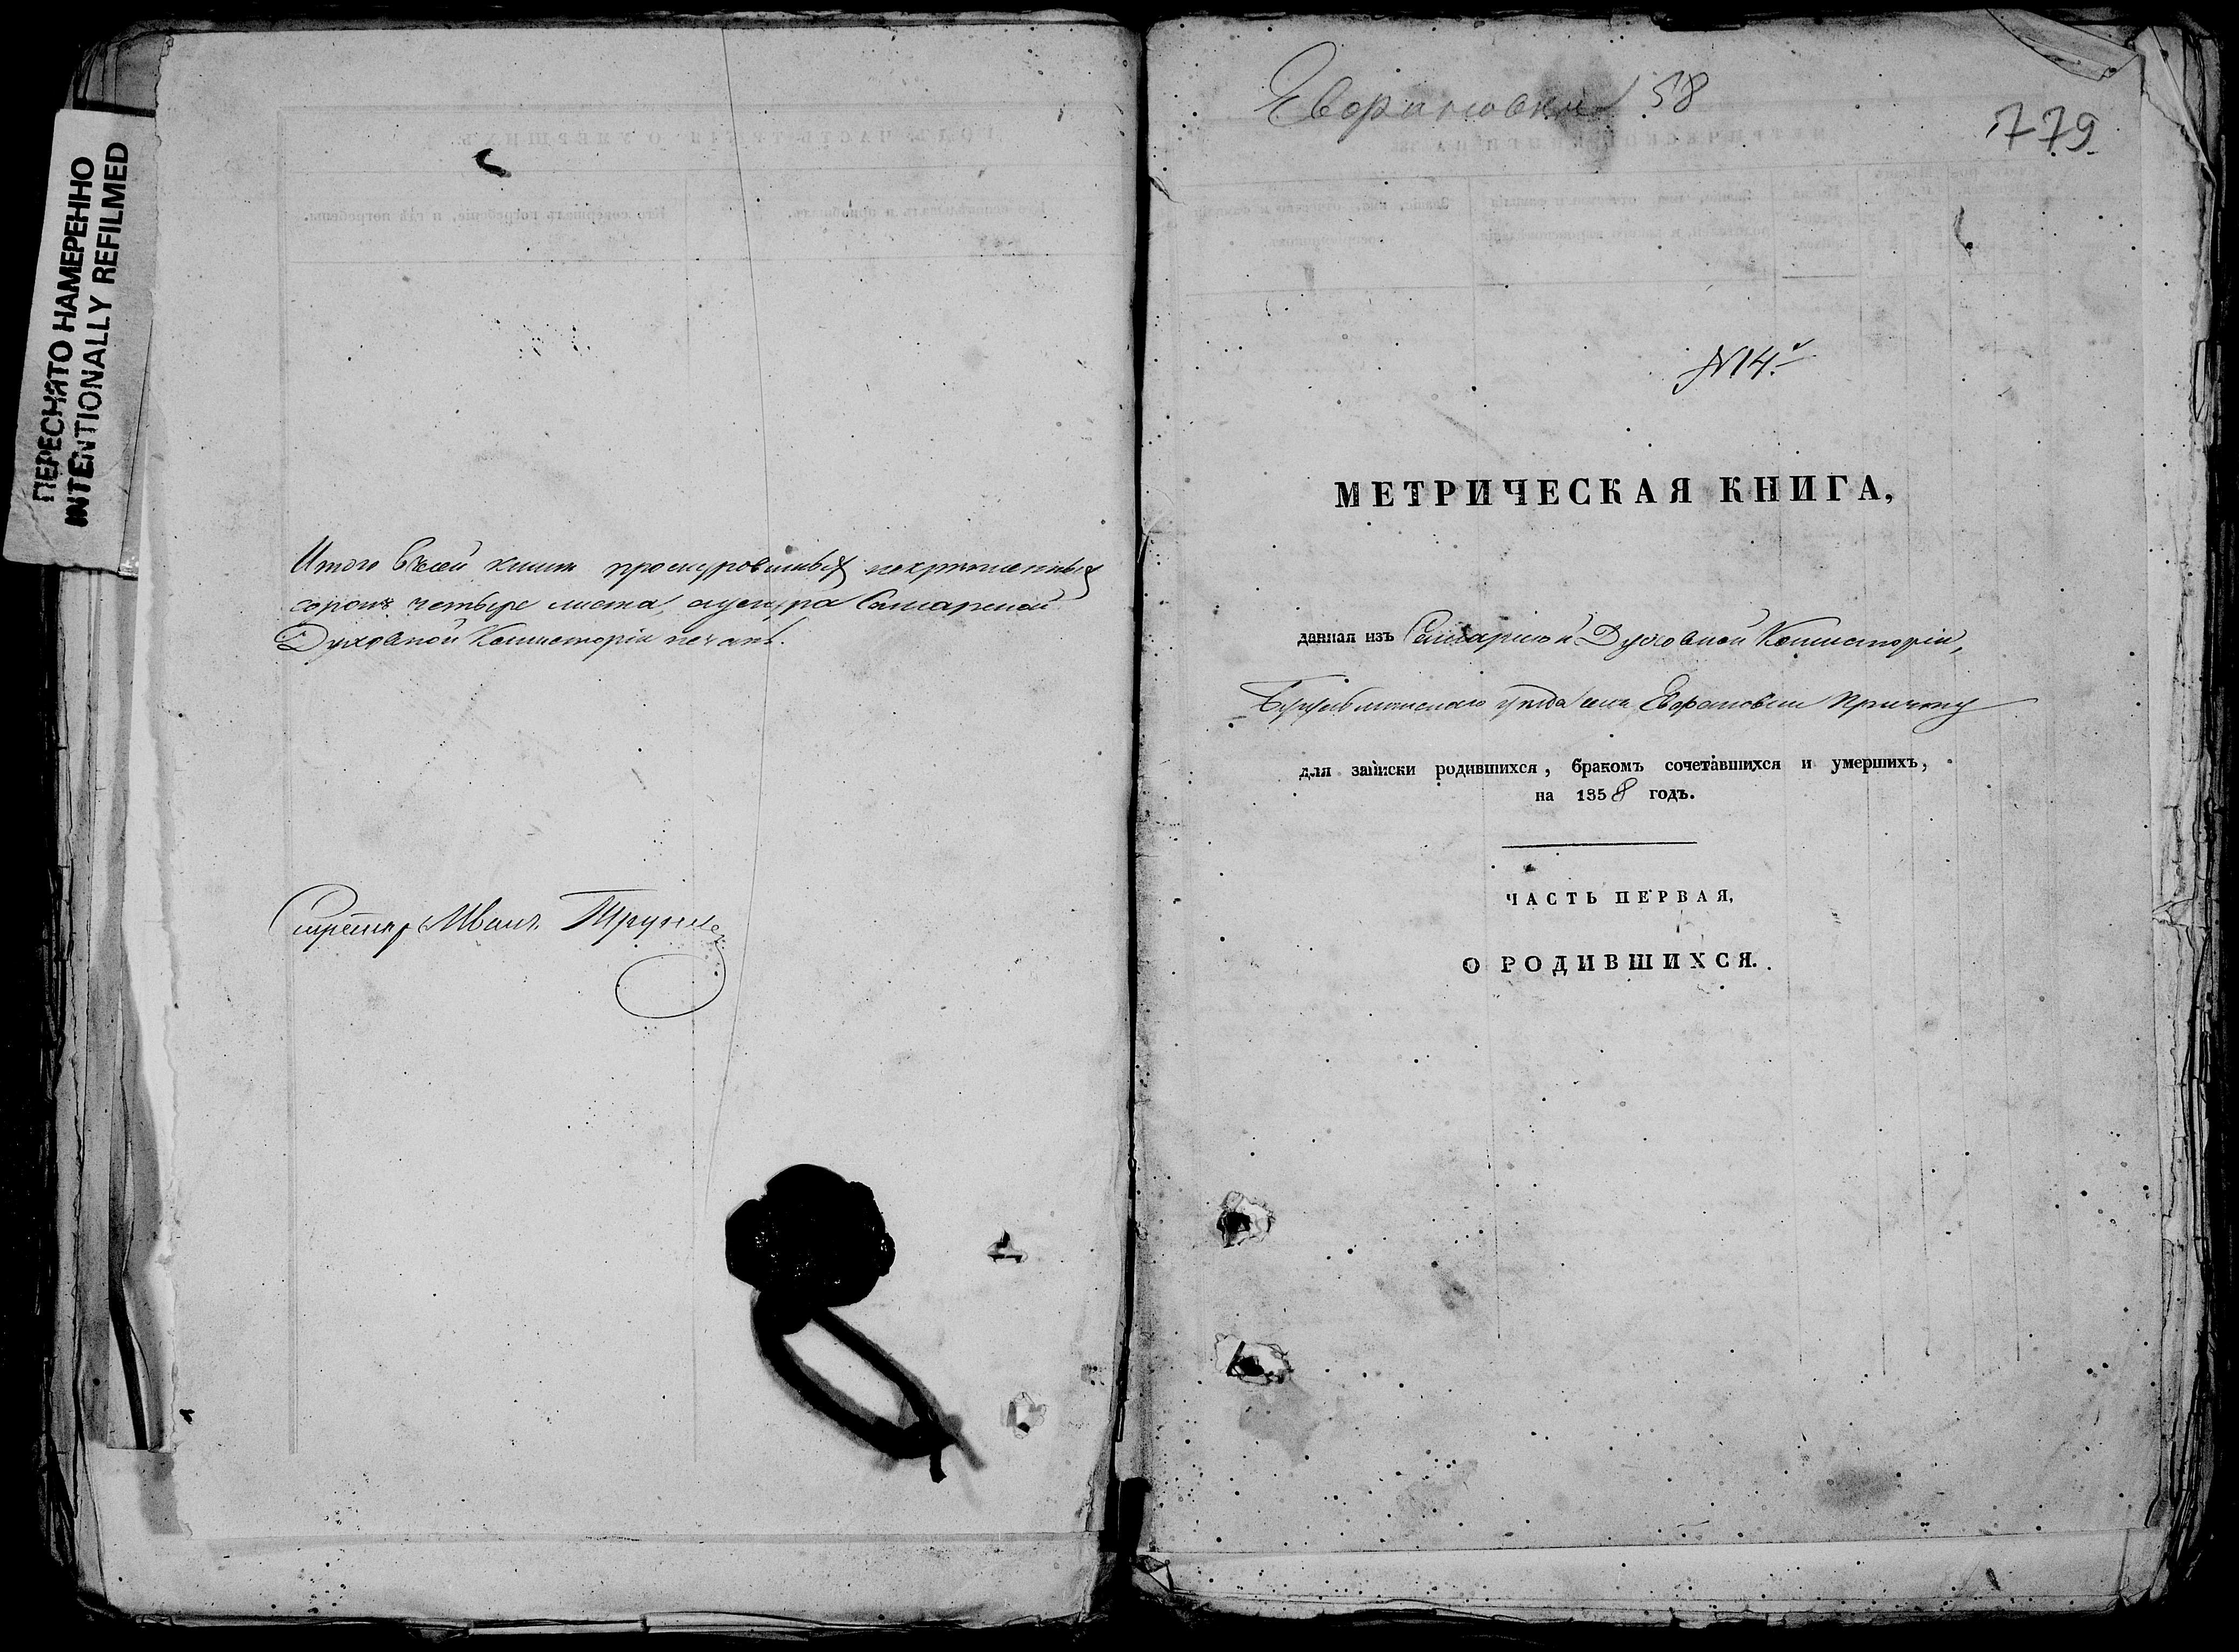 ПЕРЕСНЯТО НАМЕРЕННО
INTENTIONALLY REFILMED
Итого всей книги прошнурованныхъ
сорокъ четыре листа, Самарской
Духовной Консисторіи печать.
Секретарь Иванъ
58
779
№ 14.
МЕТРИЧЕСКАЯ КНИГА,
данная изъ Самарской Духовной Консисторіи,
Бугульминскаго уѣзда села Причту
для записки родившихся, бракомъ сочетавшихся и умершихъ,
на 1858 годъ.
ЧАСТЬ ПЕРВАЯ,
О РОДИВШИХСЯ.